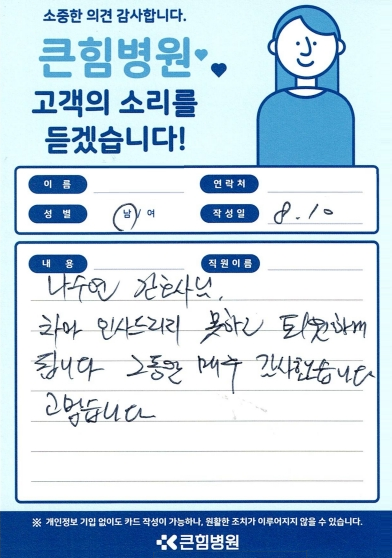 소중한 의견 감사합니다.
큰힘병원
고객의 소리를
듣겠습니다!
이 름
연락처
성 별 남/여
작성일 8.10
내 용
직원이름
나수연 간호사님,
차마 인사드리리 못하고 퇴원하게
됩니다 그동안 매우 감사했습니다
고맙습니다
※ 개인정보 기입 없이도 카드 작성이 가능하나, 원활한 조치가 이루어지지 않을 수 있습니다.
큰힘병원